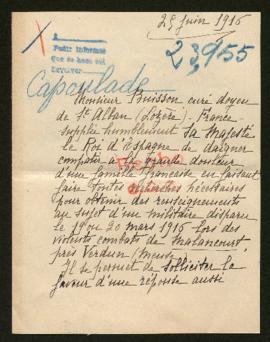 29 Juin 1916
A
Pedir informe
que se hace del
23955
Capoulade
Monsieur Buisson curé doyen
de St Alban (Lozère). France
supplie humblement Sa Majesté
le Roi d'Espagne de daigner
compatir à la grande douleur
d'une famille française en faisant
faire toutes recherches nécessaires
pour obtenir des renseignements
au sujet d'un militaire disparu
le 19 ou 20 mars 1916 lors des
violents combats de Malancourt
près Verdun (Meuse
Il se permet de solliciter la
faveur d'une réponse aussi